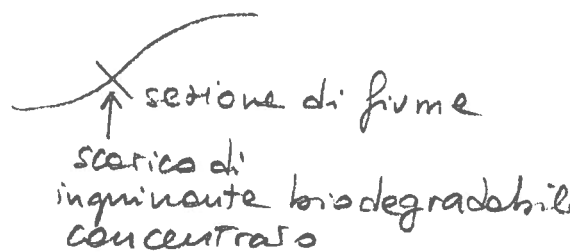 sezione di fiume
scarico di
inquinante biodegradabile
concentrato